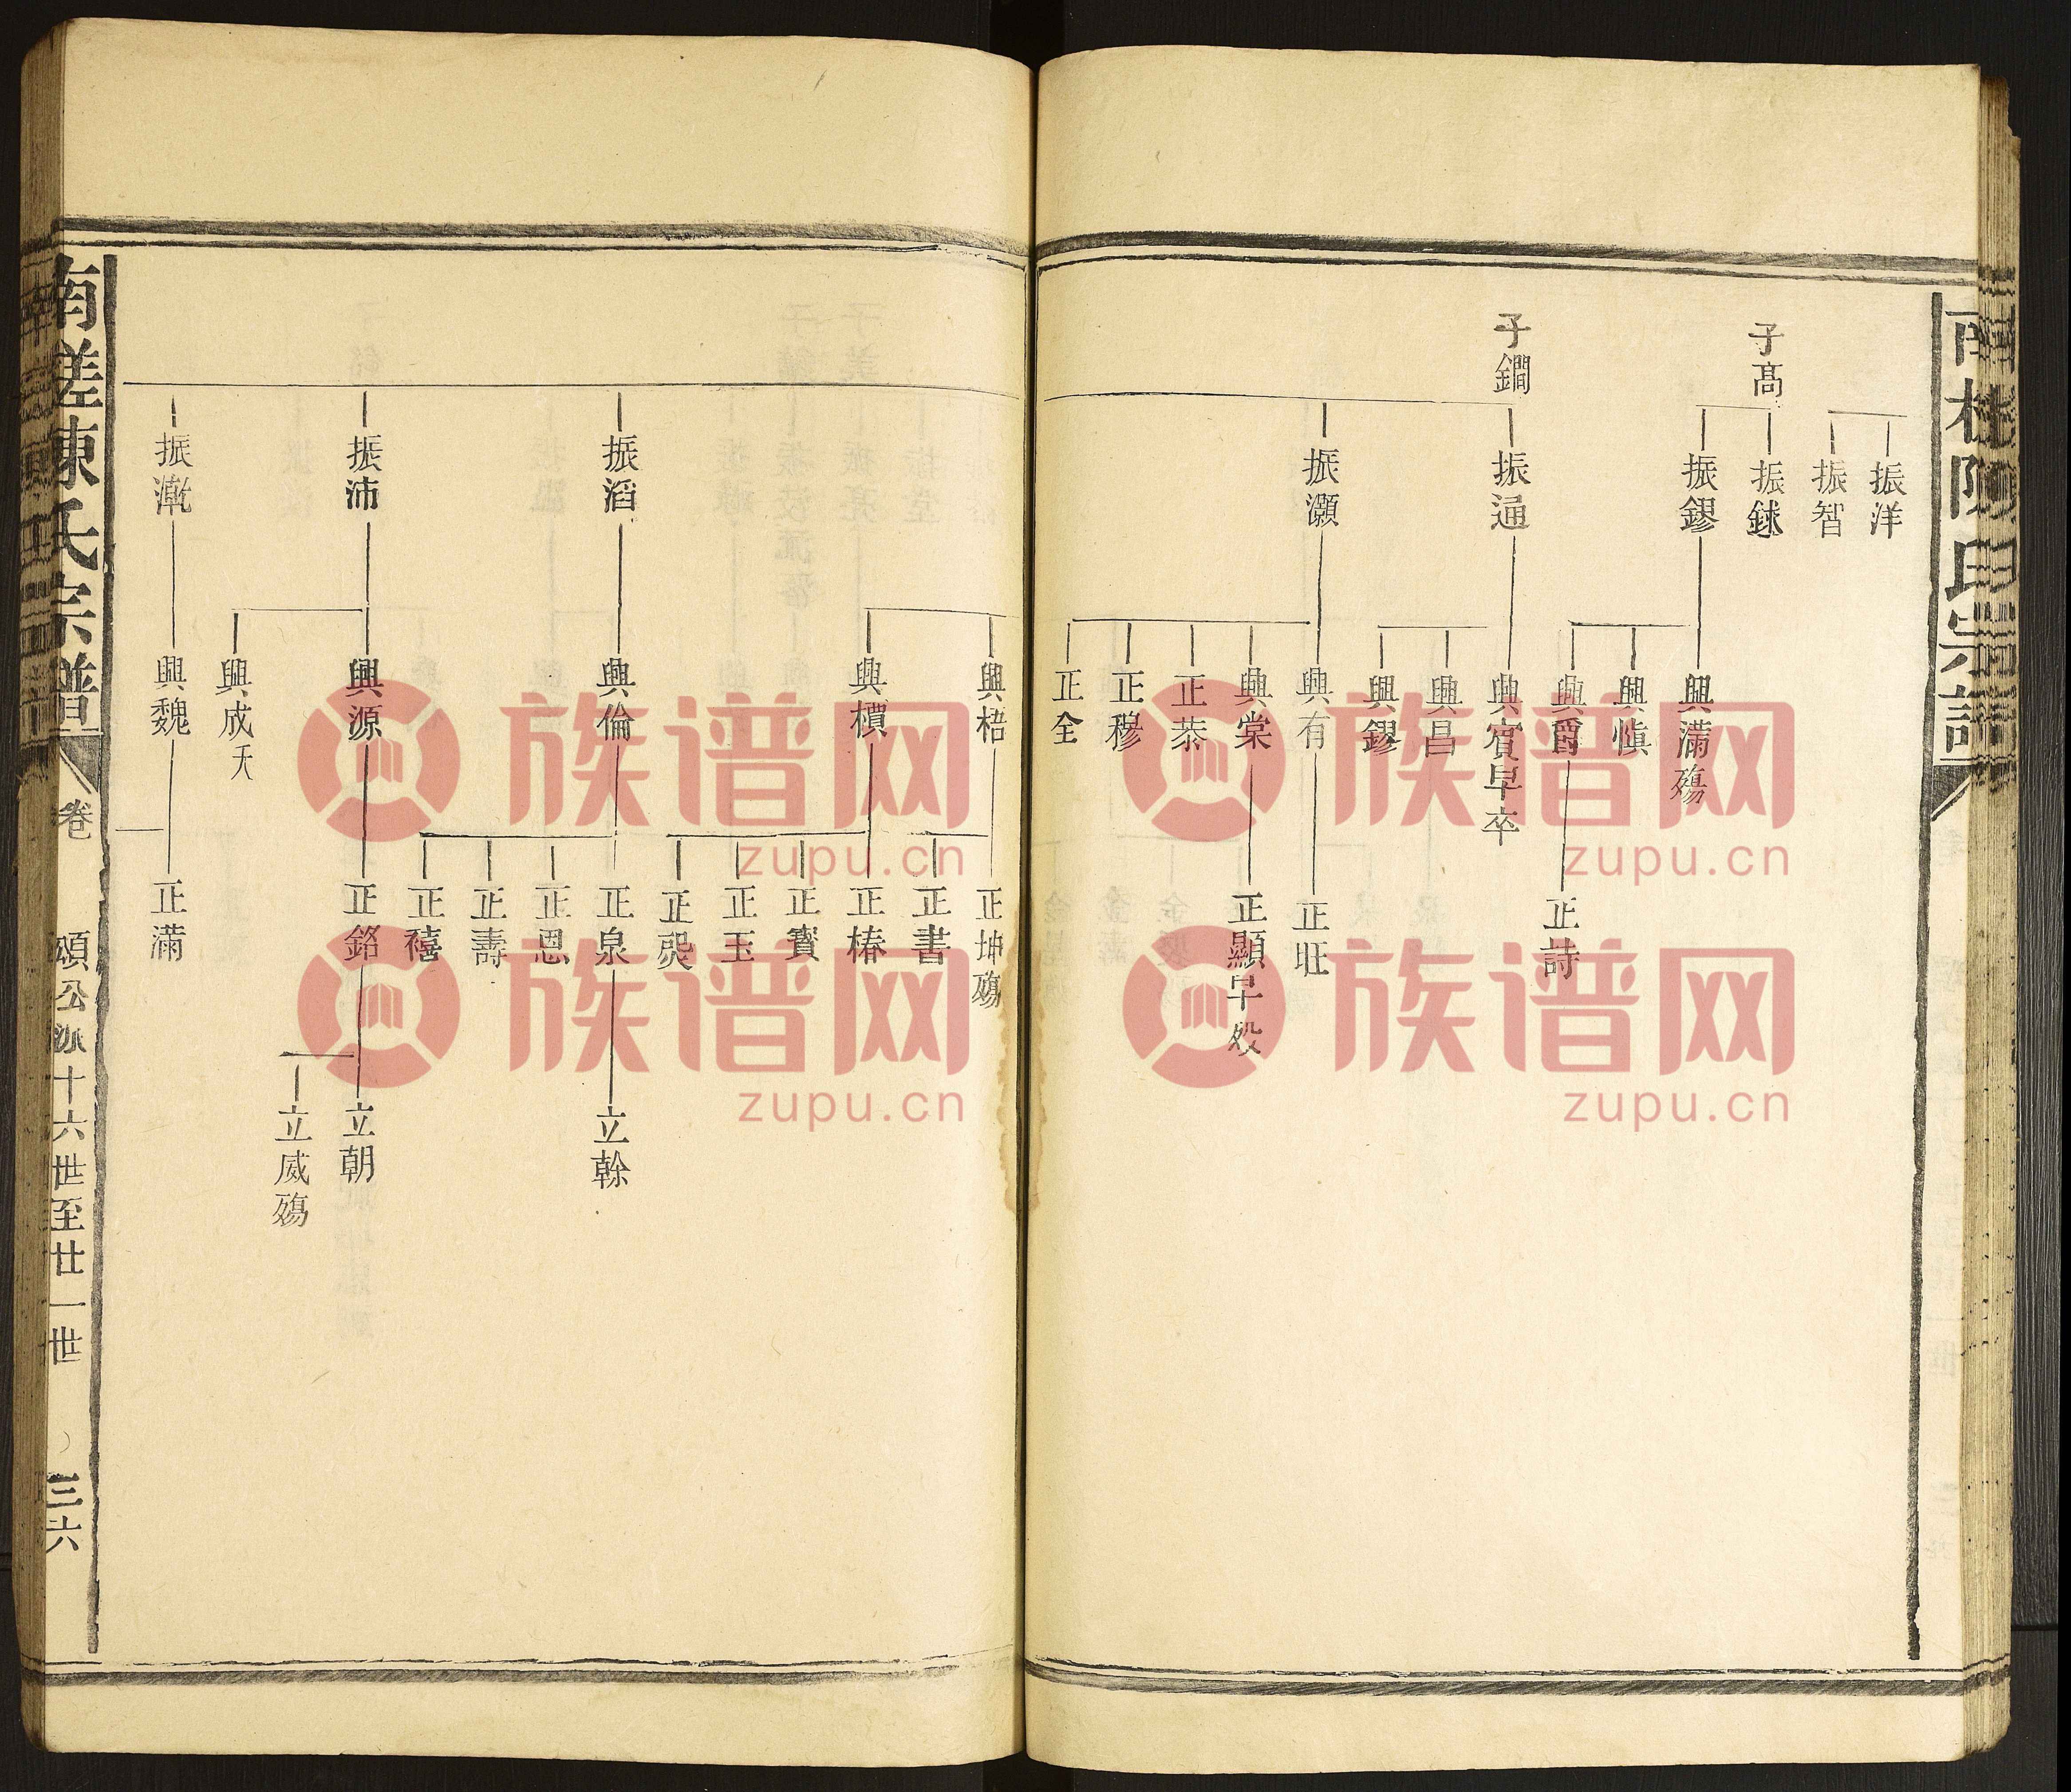 子髙
子鐧
振洋
振智
振銶
振鏐
振通
振灝
興滿殤
興愼
興爵
興賓早卒
興昌
興鏐
興有
興棠
正恭
正穆
正全
正詩
正旺
正顯早歿
陳氏宗譜
振滔
振沛
振漧
興梧
興櫝
興倫
興源
興成夭
興魏
正坤殤
正書
正椿
正寳
正玉
正熙
正泉
正恩
正壽
正禧
正銘
正滿
立榦
立朝
立威殤
南槎陳氏宗譜
卷
頌公派十六世至廿一世
三六
族谱网
zupu.cn
族谱网
zupu.cn
族谱网
zupu.cn
族谱网
zupu.cn